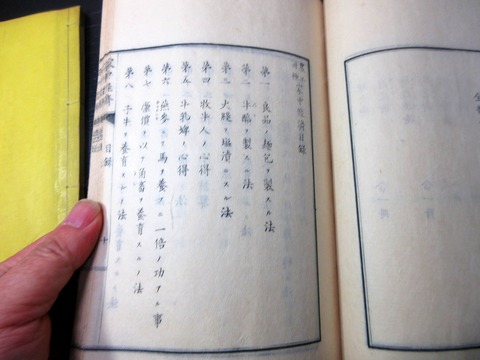 家中經濟目録
第一 良品ノ麺包ヲ製スル法
第二 牛酪ヲ製スル法
第三 火腿ヲ塩漬ニスル法
第四 牧牛人ノ心得
第五 牛乳婦ノ心得
第六 燕麥 馬ヲ養 一倍ノ功アル事
第七 廉價ヲ以テ角畜ヲ養育スルノ法
第八 子牛ヲ養育スルノ法
家中經濟 目録 十